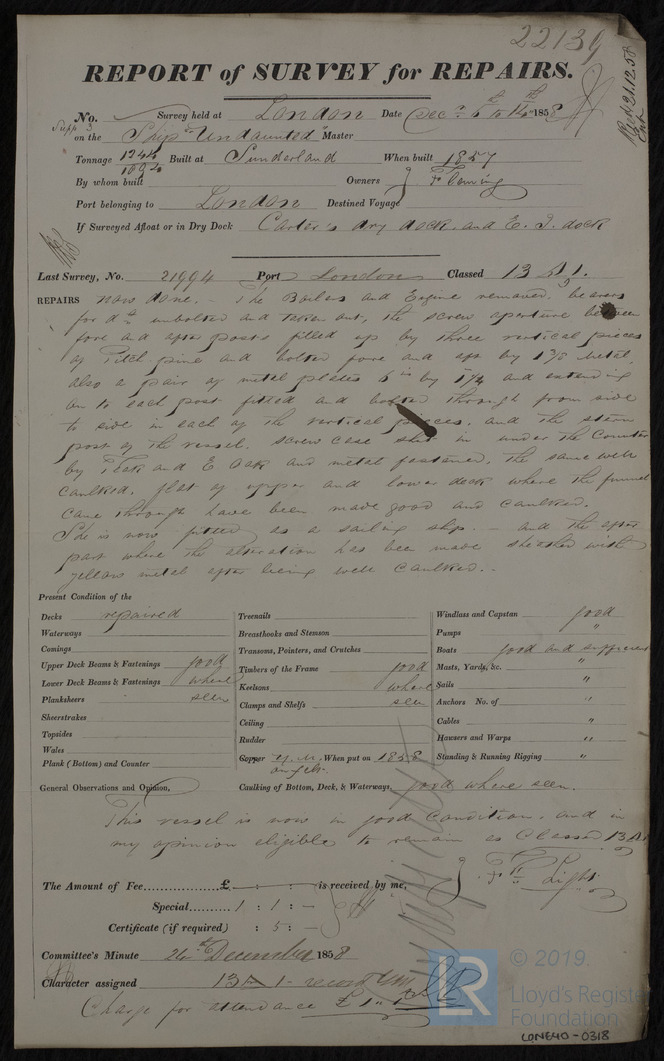 22139
REPORT of SURVEY for REPAIRS.
No. Survey held at London Date Decr 6th to 14th 1858
on the Ship "Undaunted" Master
Tonnage 1244 Built at Sunderland When built 1857
By whom built Owners J Fleming
Port belonging to London Destined Voyage
If Surveyed Afloat or in Dry Dock Carter's dry dock. and E. I. dock
Last Survey, No. 21994 Port London Classed 13 A 1.
REPAIRS now done. - The Boilers and Engine removed, bearers
for do unbolted and taken out, the screw aperture between
fore and after posts filled up by three vertical pieces
of Pitch pine and bolted fore and aft by 1 3/8 metal.
also a pair of metal plates 6 in by 1 1/4 and extending
on to each post fitted and bolted through from side
to side in each of the vertical pieces. and the stern
post of the vessel. Screw case shut in under the Counter
by Teak and E Oak and metal fastened. the same well
caulked. flat of upper and lower deck where the funnel
came through have been made good and caulked.
She is now fitted as a sailing ship. - and the after
part where the alteration has been made sheathed with
yellow metal after being well caulked.
Present Condition of the
Decks repaired
Waterways
Comings
Upper Deck Beams & Fastenings good
Lower Deck Beams & Fastenings where
Planksheers seen
Sheerstrakes
Topsides
Wales
Plank (Bottom) and Counter
Treenails
Breasthooks and Stemson
Transoms, Pointers, and Crutches
Timbers of the Frame good
Keelsons where
Clamps and Shelfs seen
Ceiling
Rudder
Copper Y. M. When put on 1858
Windlass and Capstan good
Pumps "
Boats good and sufficient
Masts, Yards, &c. "
Sails "
Anchors No. of "
Cables "
Hawsers and Warps "
Standing & Running Rigging "
General Observations and Opinion, Caulking of Bottom, Deck, & Waterways, good where seen.
This vessel is now in good condition. and in
my opinion eligible to remain as Classed 13 A 1
The Amount of Fee £ - : - : - is received by me, Light
Special 1 : 1 : -
Certificate (if required) : 5 : -
Committee's Minute 24th December 1858
Character assigned 13 A 1 - record YM
Charge for attendance £1..1
© 2019.
LR Lloyd's Register
Foundation
LONE40-0318